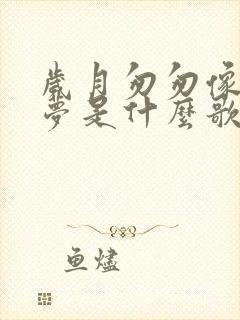 歲月匆匆像
夢是什麼歌
鱼燼